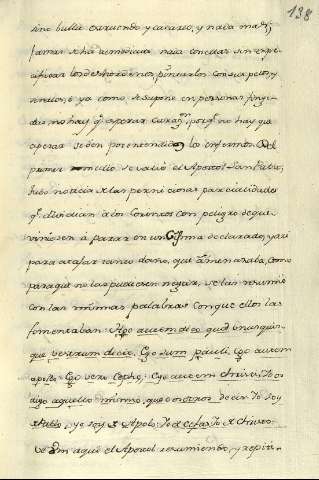 138
sino bulla estruendo y cacareo, y nada mas;
jamas se ha remediado nada con ellas sin espe-
cificar los desordenes, pintarlos con sus pelos, y
señales, è ya como se supone en personas fingi-
das no hay q̃ esperar curaz.ⁿ, porq̃ no hay que
esperar se den por entendidos los enfermos. Del
primer medio se valió el Apostol San Pablo,
tubo noticia de las perniciosas parcialidades
q̃ dividian a los Corintios con peligro de que
viniesen à parar en un Cisma declarado, y asi
para atajar tanto daño, que amenazaba, como
para que no las pudiesen negar, se las resumió
con las mismas palabras con que ellos las
fomentaban: Hoc autem dico quod unusquis-
que vestrum dicit: Ego sum Pauli, Ego autem
Apollo: Ego vero Cephæ, Ego autem Christi. Yo os
digo aquello mismo, que vosotros decis: Yo soy
de Pablo, yo soy de Apolo: Yo de Cefas: Yo de Christo.
Ve Vm. aqui el Apostol resumiendo, y repi-